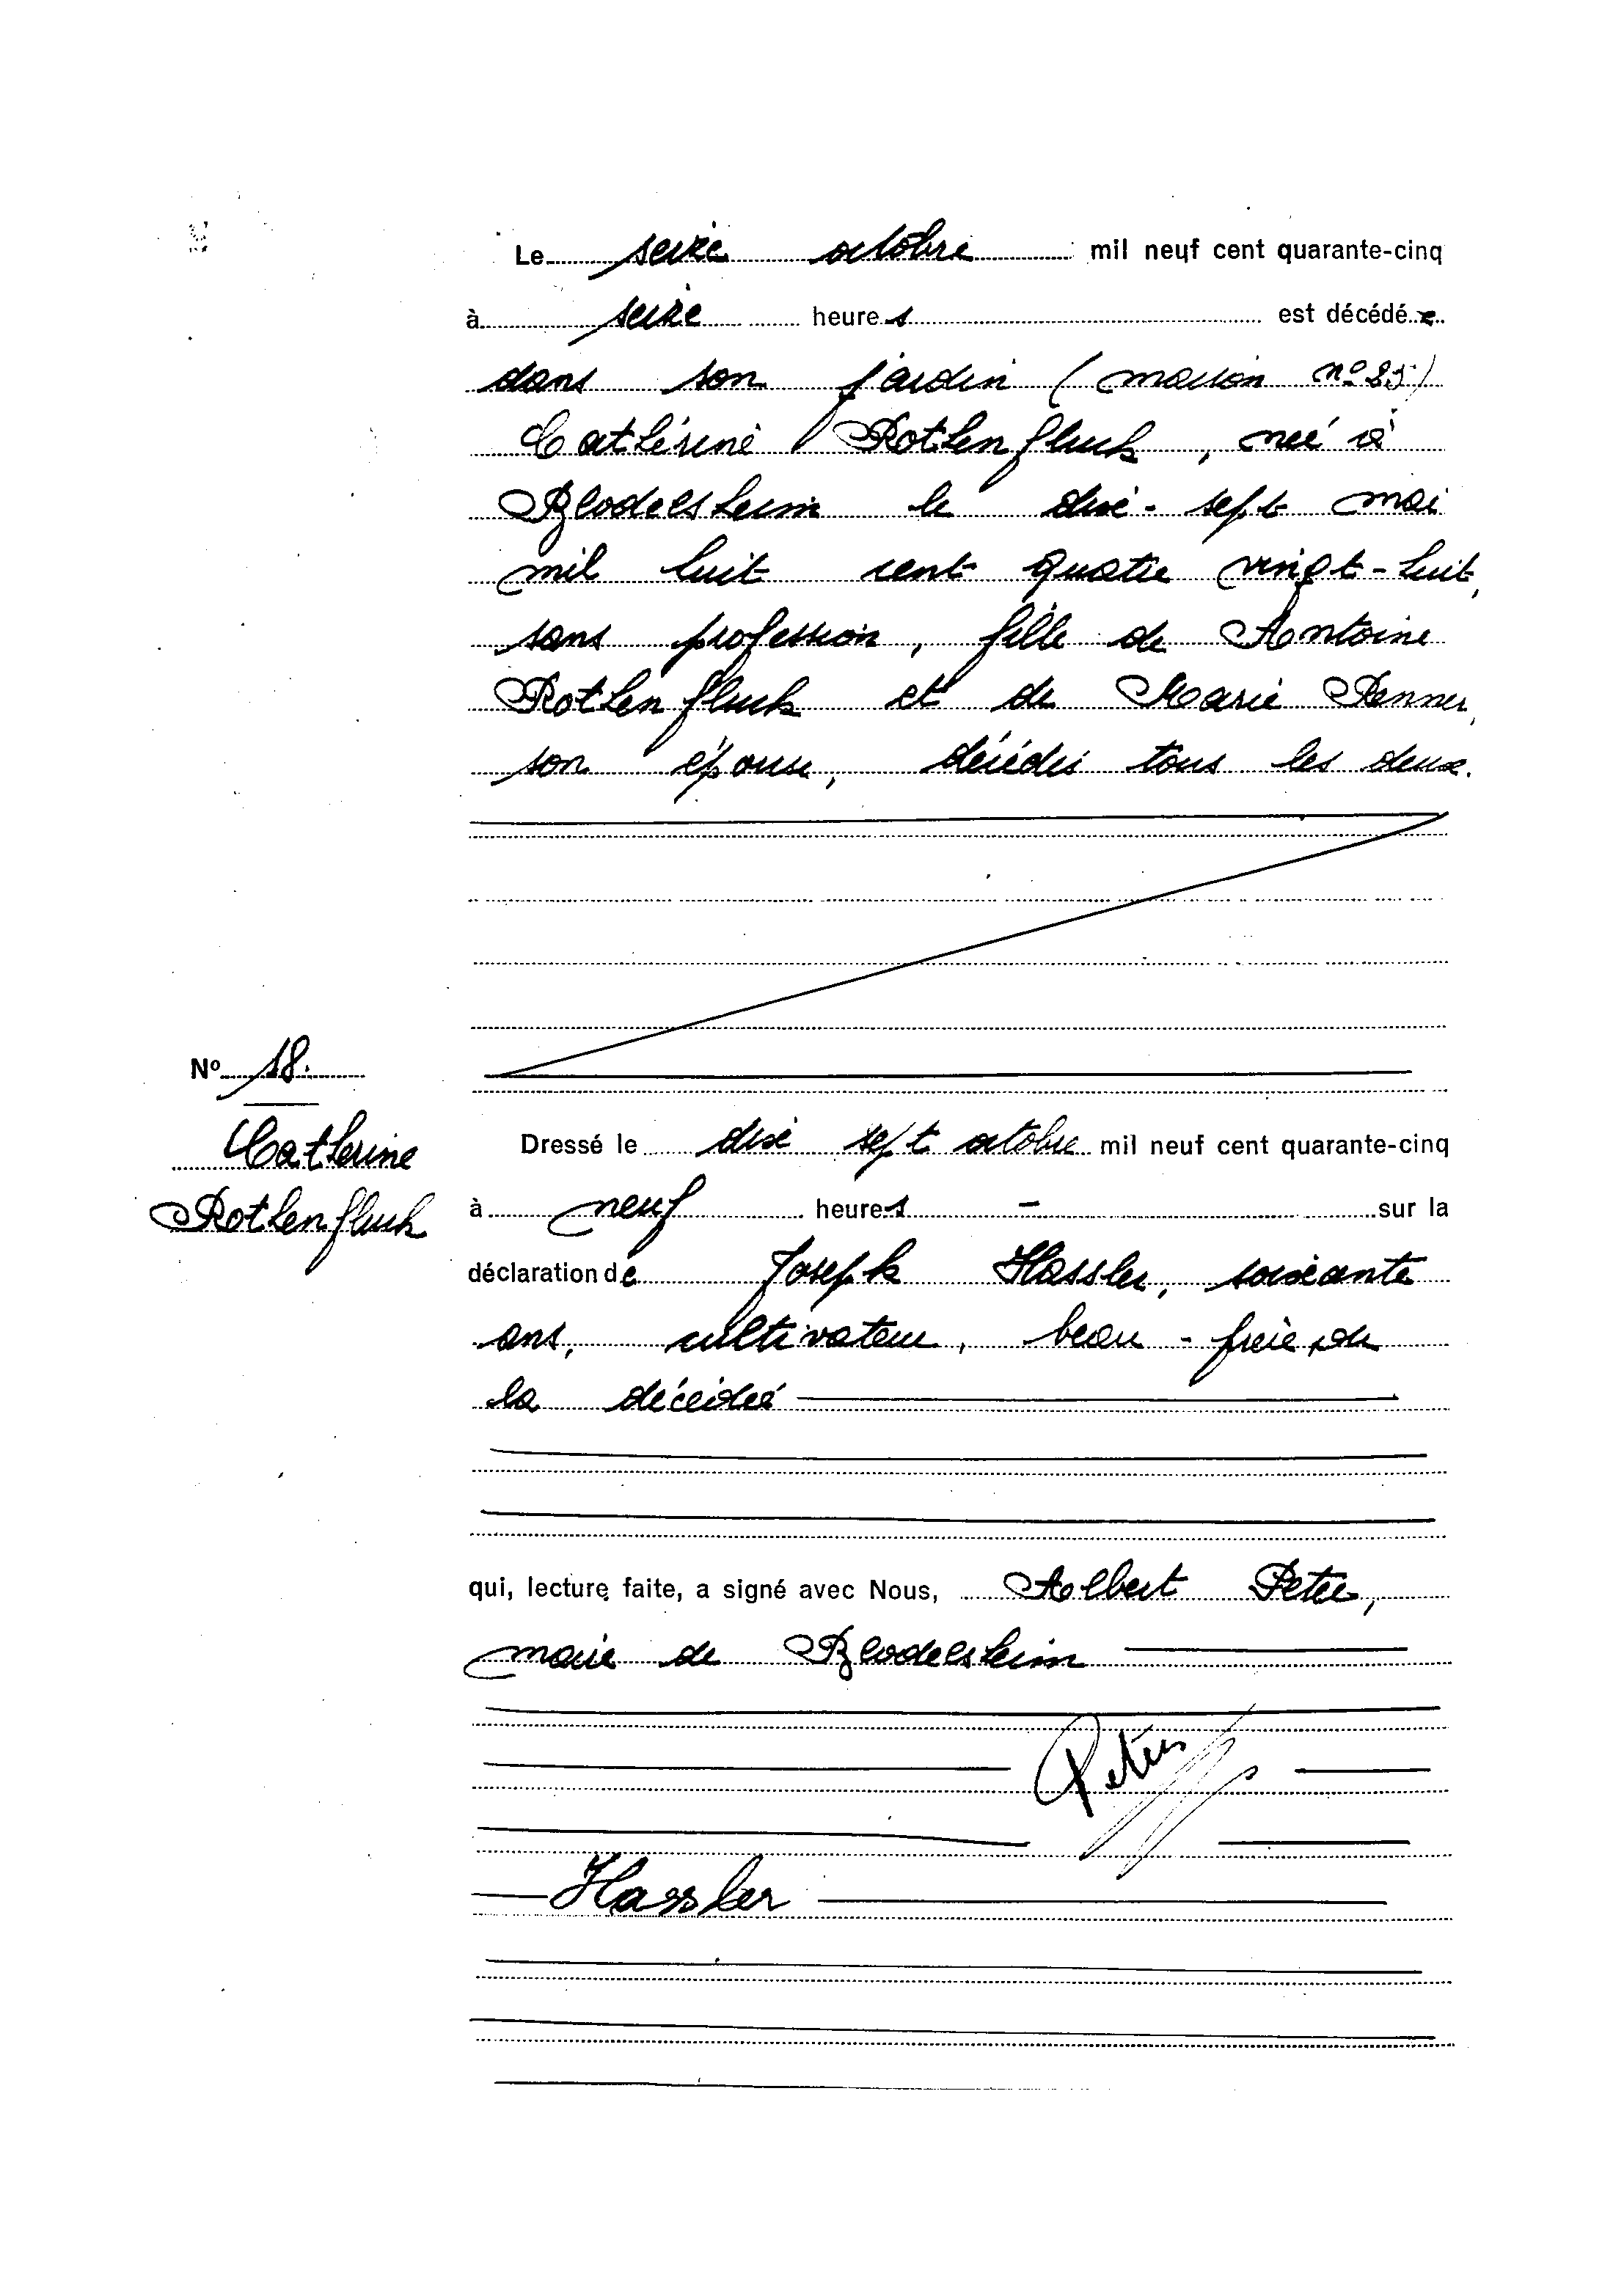 Le seize octobre mil neuf cent quarante-cinq
à seize heures est décédée
dans son jardin (maison nº 85)
Cathérine Rothenfluch, née à
Blodelsheim le dix-sept mai
mil huit cent quatre vingt-huit,
sans profession, fille de Antoine
Rothenfluch et de Marie Renner,
son épouse, décédés tous les deux.
Nº 18.
Catherine
Rothenfluch
Dressé le dix sept octobre mil neuf cent quarante-cinq
à neuf heures - sur la
déclaration de Joseph Hassler, soixante
ans, cultivateur, beau-frère de
la décédée
qui, lecture faite, a signé avec Nous, Albert Peter,
maire de Blodelsheim
Peter
Hassler